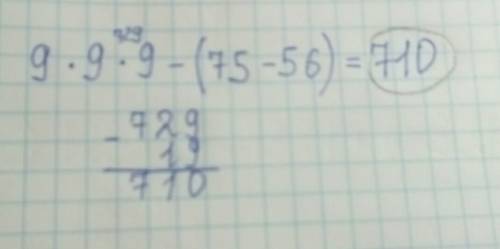 729
9 · 9 · 9 - (75 - 56) = 710
- 729
19
710